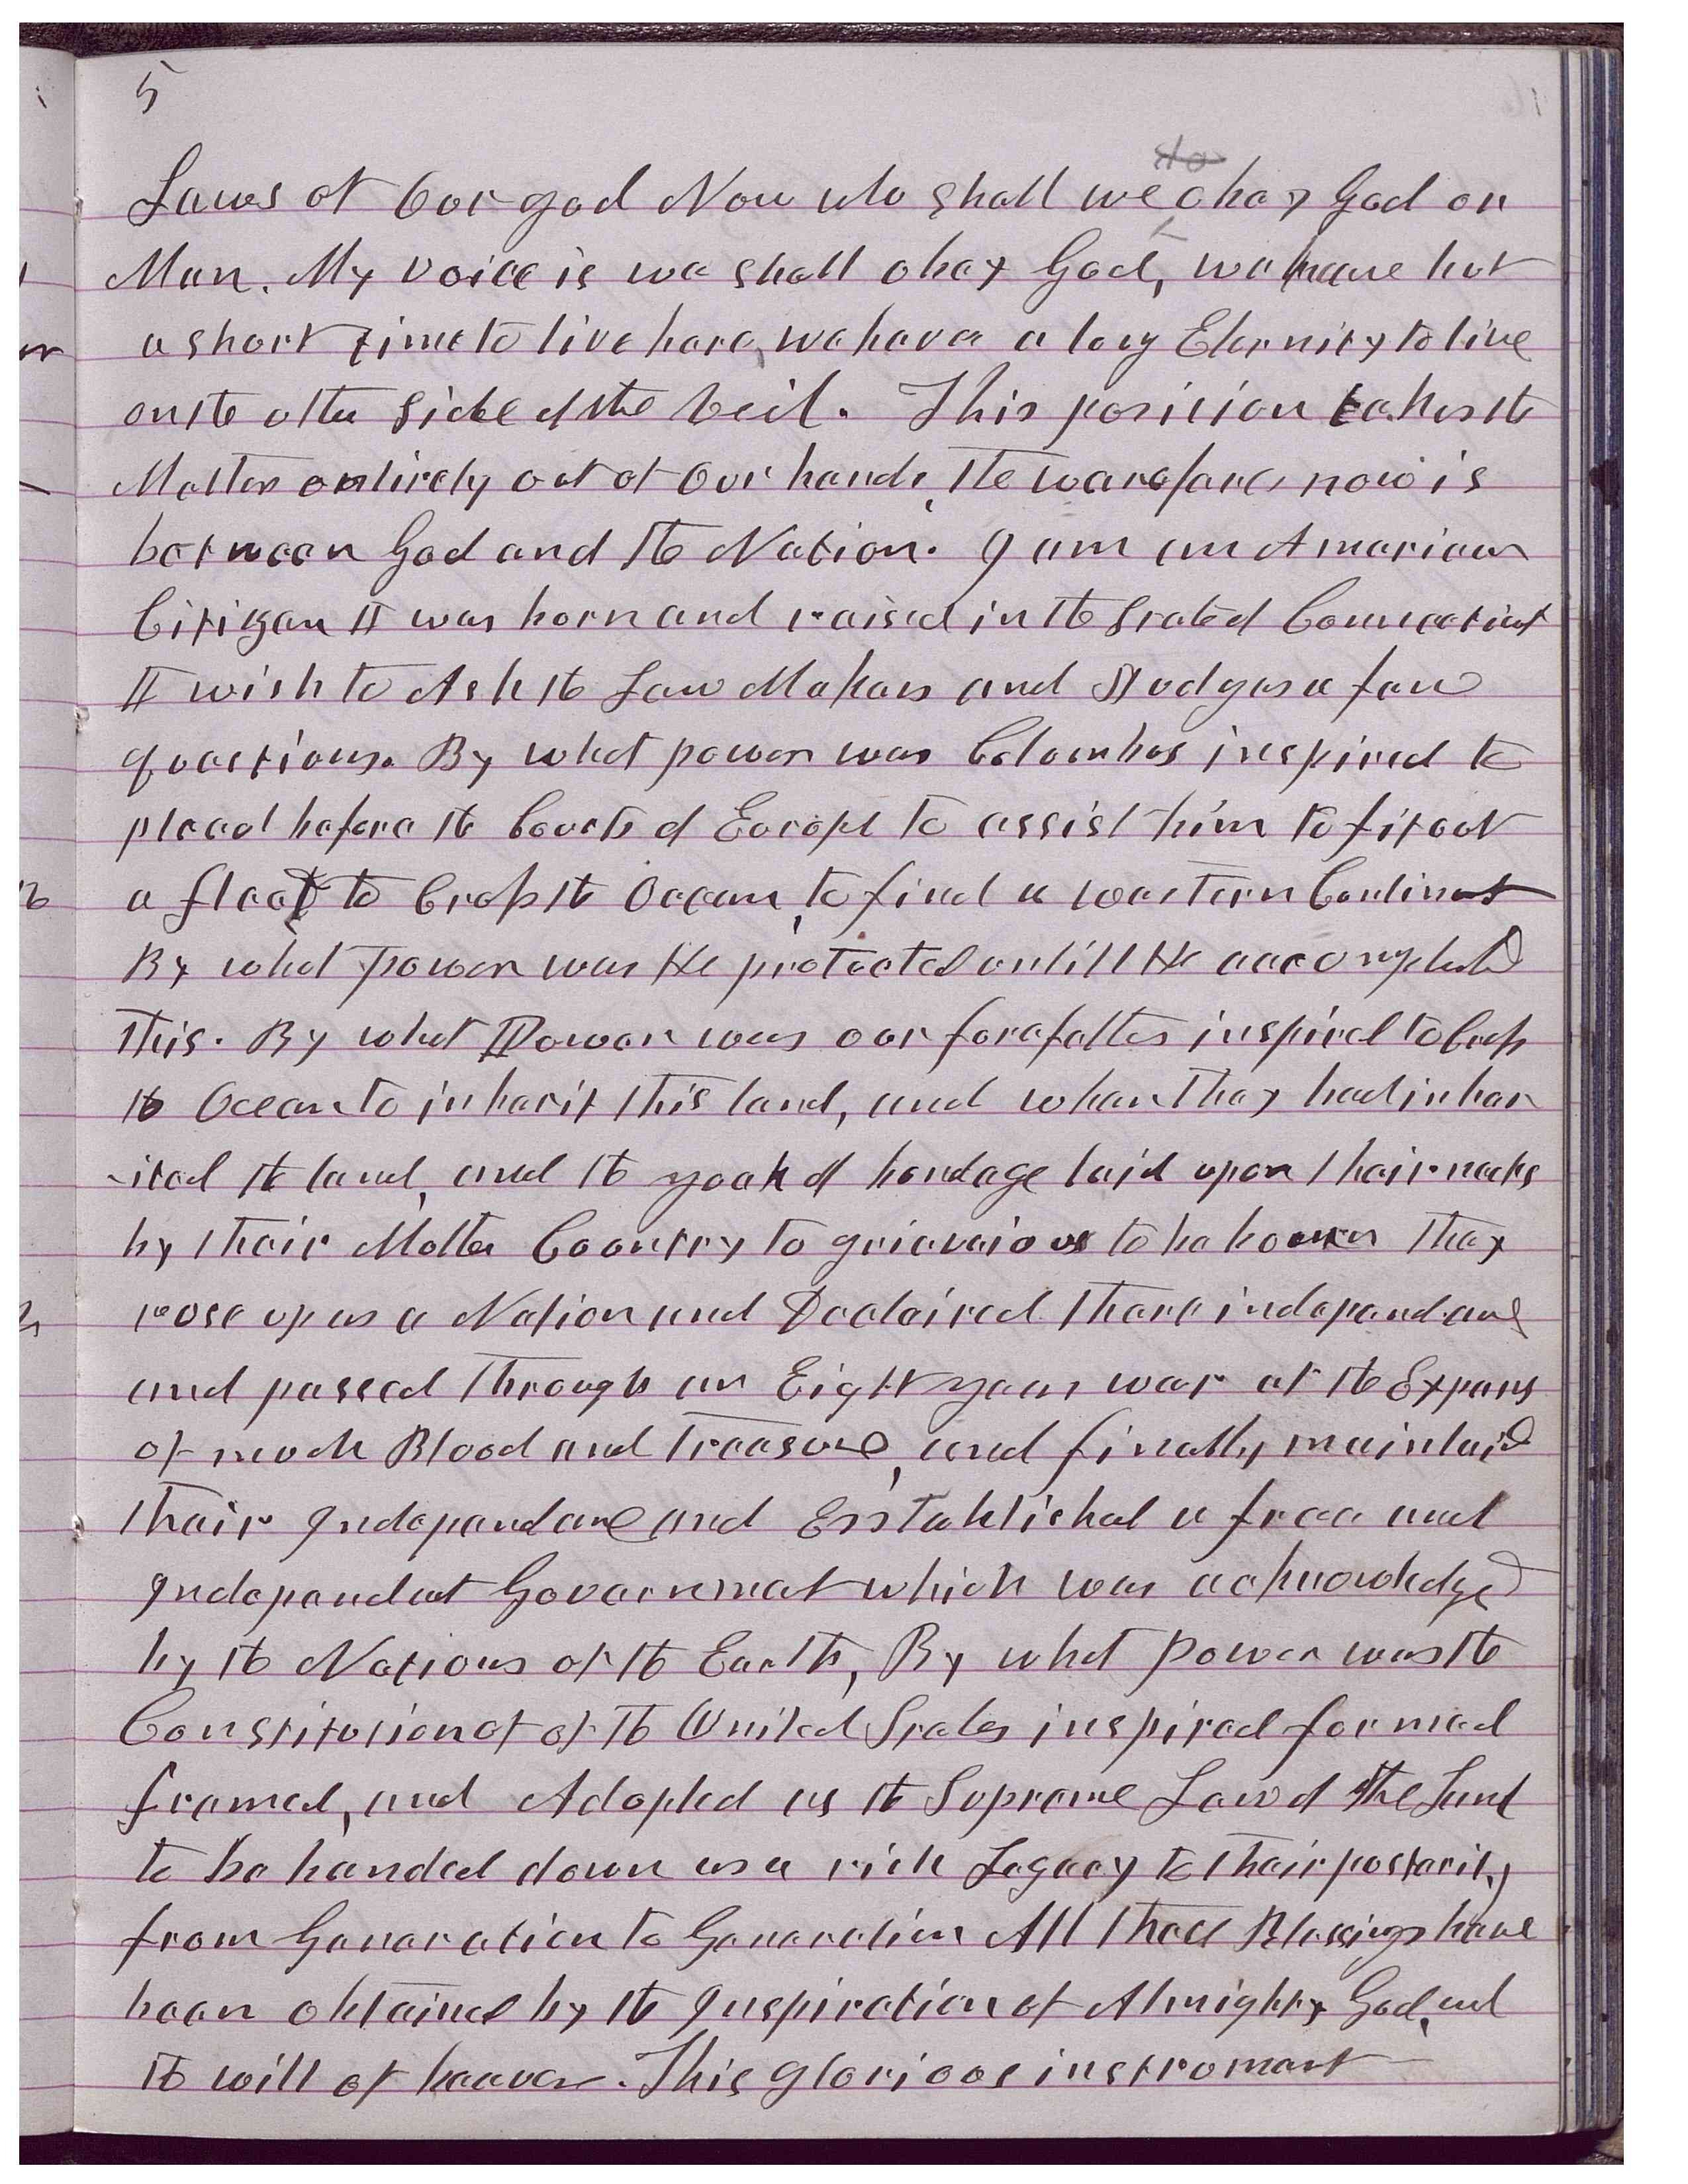 5
Laws of Our god Now who shall we obey God or
Man. My voice is we shall obey God, we have but
a short time to live here, we have a long Eternity to live
on the other side of the veil. This position takes the
Matter entirely out of Our hands, the warefare now is
between God and the Nation. I am an American
Citizen I was born and raised in the State of Connecticut
I wish to Ask the Law Makers and Judges a few
questions. By what power was Columbus inspired to
plead before the Courts of Europe to assist him to fit out
a fleet to Cross the Ocean, to find a western Continent
By what power was He protected untill He accomplished
this. By what Power was our forefathers inspired to Cross
the Ocean to inherit this land, and when they had inher
-ited the land, and the yoak of bondage laid upon their necks
by their Mother Country to grieveious to be bourn they
rose up as a Nation and Declaired there independance
and passed through an Eight years war at the Expens
of much Blood and treasure, and finally maintaind
their Independance and Esstablished a free and
Independent Government which was acknowledged
by the Nations of the Earth, By what power was the
Constitution of of the United States inspired formed
framed, and Adopted as the Supreme Law of the Land
to be handed down as a rich Legacy to their posterity
from Generation to Generation All these Blessings have
been obtained by the Inspiration of Almighty God, and
the will of heaven. This glorious instrument